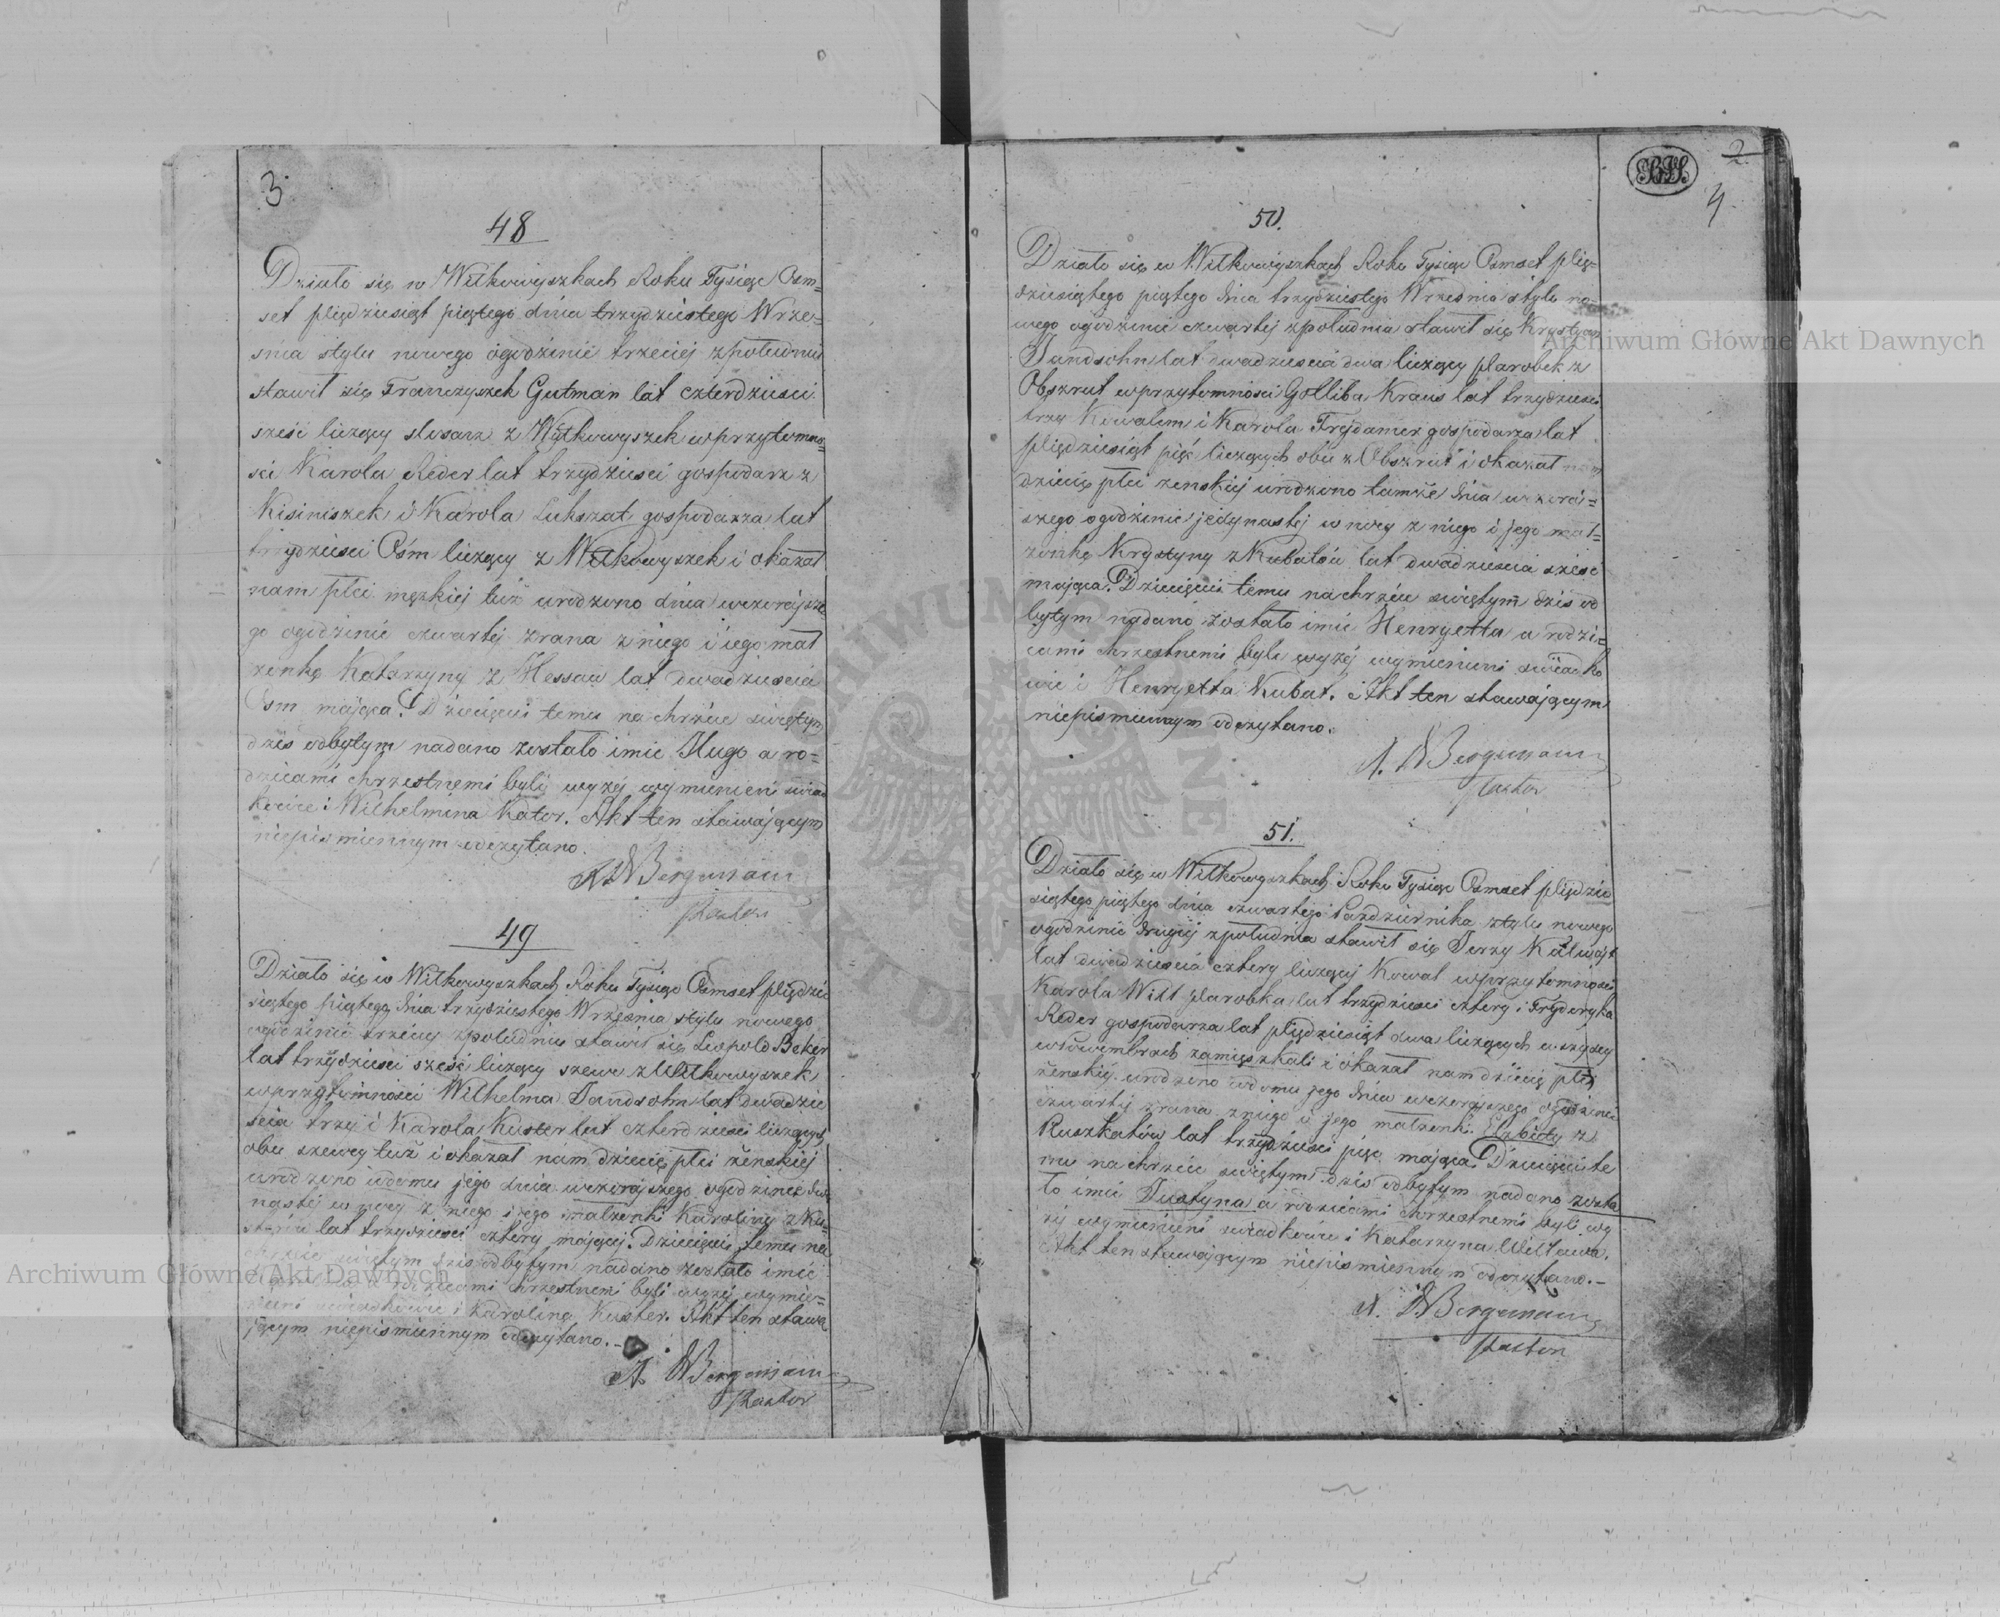 3
48
Działo się w Wiłkowyszkach Roku Tysiąc Osm=
set piędziesiąt piątego dnia trzydziestego Wrze=
śnia stylu nowego ogodzinie trzeciej zpołudniu
stawił się Franczyszek Gutman lat czterdzieści
sześć liczący slosarz z Wiłkowyszek wprzytomno
ści Karola Reder lat trzydzieści gospodarz z
Kisiniszek i Karola Lukszat gospodarza lat
trzydzieści Ośm liczący z Wiłkowyszek i okazał
nam płci męzkiej tuż urodzono dnia wczorajsze
go ogodzinie czwartej zrana z niego i iego mał
żonkę Katarzyny z Hessow lat dwadzieścia
Osm mająca. Dziecięciu temu na chrzcie świętym
dziś odbytym nadano zostało imie Hugo a ro=
dzicami chrzestnemi byli wyżej wymienieni świad
kowie i Wilhelmina Kator. Akt ten stawającym
niepismiennym odczytano.
A. W Bergmann
Pastor
49
Działo się w Wiłkowyszkach Roku Tysiąc Osmset pięździe
siątego piątego dnia trzydziestego Września stylu nowego
ogodzinie trzeciej zpołudniu stawił się Leopold Beker
lat trzydzieści sześć liczący szewc z Wiłkowyszek
wprzytomności Wilhelma Jandsohn lat dwadzie
ścia trzy i Karola Kuster lat czterdzieści liczących
obu szewcy tuż i okazał nam dziecię płci żeńskiej
urodzono wdomu jego dnia wczorajszego ogodzinie dwu
nastej w nocy z niego i jego małżonki Karoliny z Ku=
sterów lat trzydzieści cztery mającej. Dziecięciu temu na
chrzcie świętym dziś odbytym nadano zostało imie
a rodzicami chrzestnemi byli wyżej wymie=
nieni świadkowie i Karolina Kuster. Akt ten stawa
jącym niepismiennym odczytano.
A. W Bergmann
Pastor
2
4
50.
Działo się w Wiłkowyszkach Roku Tysiąc Osmset pięź=
dziesiątego piątego dnia trzydziestego Września stylu no=
wego ogodzinie czwartej zpołudnia stawił się Krystyan
Jandsohn lat dwadzieścia dwa liczący Parobek z
Obszrut wprzytomności Gotliba Kraus lat trzydzieści
trzy Kowalem i Karola Frejdamer gospodarza lat
pięździesiąt pięć liczących obu z Obszrut i okazał nam
dziecię płci żenskiej urodzono tamże dnia wczoraj=
szego ogodzinie jedynastej w nocy z niego i jego mał=
żonkę Krystyny z Kubatów lat dwadzieścia sześć
mająca. Dziecięciu temu na chrzcie świętym dziś od
bytym nadano zostało imie Henryetta a rodzi=
cami chrzestnemi byli wyżej wymienieni świadko
wie i Henryetta Kubat. Akt ten stawającym
niepismiennym odczytano.
A. W Bergmann
Pastor
51.
Działo się w Wiłkowyszkach Roku Tysiąc Osmset pięździe
siątego piątego dnia czwartego Października stylu nowego
ogodzinie drugiej zpołudnia stawił się Jerzy Kalwajt
lat dwadzieścia cztery liczący Kował wprzytomności
Karola Wilt Parobka lat trzydzieści cztery i Fryderyka
Reder gospodarza lat pięździesiąt dwa liczących wszyscy
zamięszkali i okazał nam dziecię płci
żenskiej urodzono wdomu jego dnia wczorajszego ogodzinie
czwartej zrana zniego i jego małżonki Elzbiety z
Ruszkatów lat trzydzieści pięć mająca. Dziecięciu te
mu na chrzcie świętym dziś odbytym nadano zosta
ło imie Justyna a rodzicami chrzestnemi byli wy
żej wymienieni świadkowie i Katarzyna Wiltowa.
Akt ten stawającym niepismiennym odczytano.
A. W Bergmann
Pastor
Archiwum Główne Akt Dawnych
Archiwum Główne Akt Dawnych